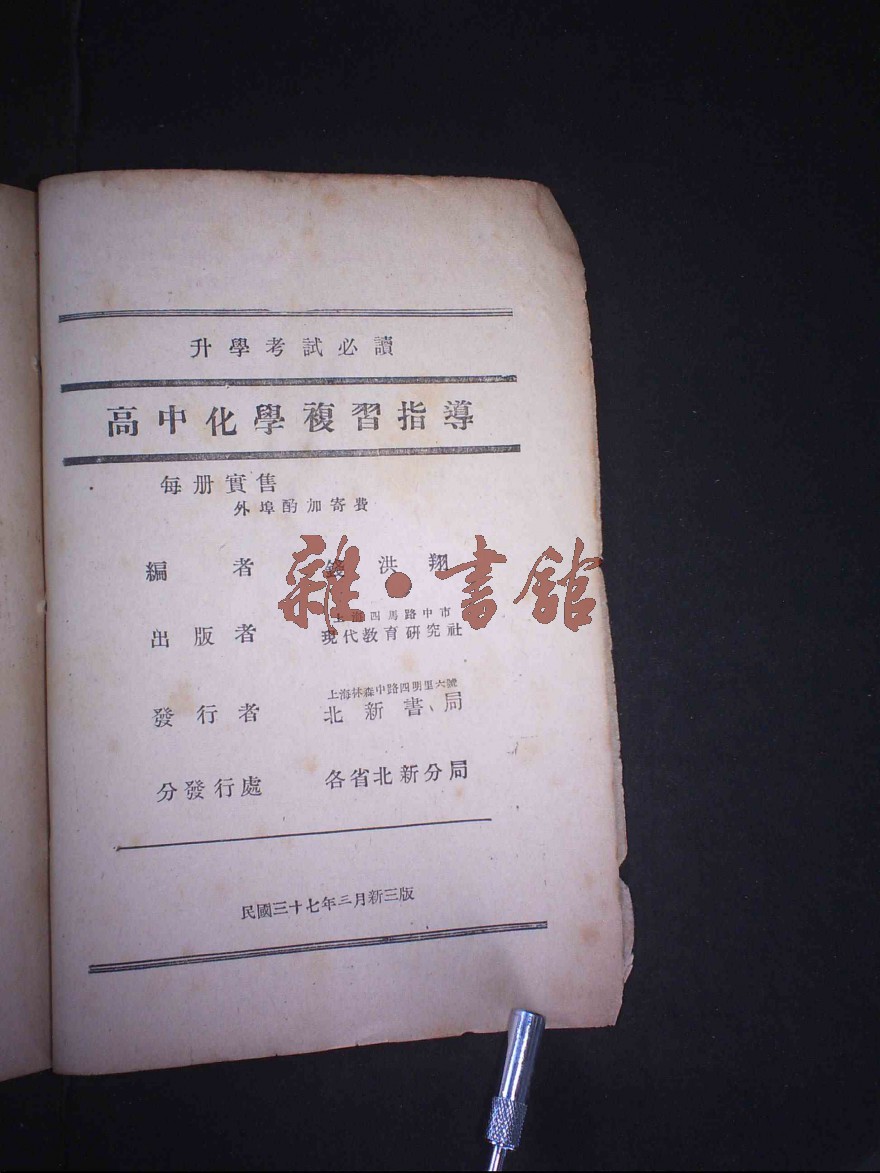 升學考試必讀
高中化學複習指導
每册實售
外埠酌加寄費
編者 錢洪翔
上海四馬路中市
出版者 現代教育研究社
上海林森中路四明里六號
發行者 北新書局
分發行處 各省北新分局
民國三十七年三月新三版
雜·書館